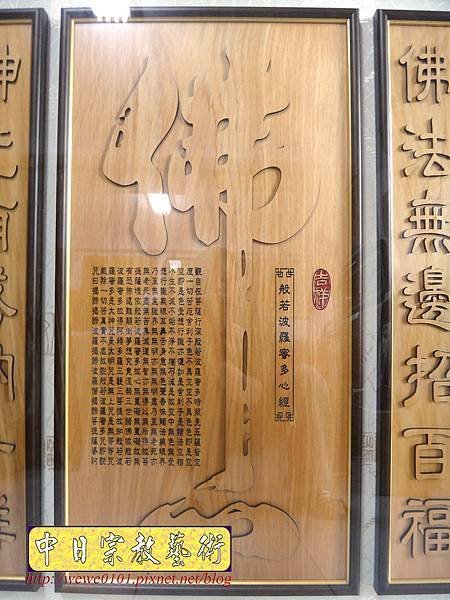 佛法無邊招百福
吉祥
般若波羅蜜多心經
佛
觀自在菩薩行深般若波羅蜜多時照見五蘊皆空
度一切苦厄舍利子色不異空空不異色色即是
空空即是色受想行識亦復如是舍利子是諸法空相
不生不滅不垢不淨不增不減是故空中無色無受
想行識無眼耳鼻舌身意無色聲香味觸法無眼界
乃至無意識界無無明亦無無明盡乃至無老死亦
無老死盡無苦集滅道無智亦無得以無所得故菩
提薩埵依般若波羅蜜多故心無罣礙無罣礙故無
有恐怖遠離顛倒夢想究竟涅槃三世諸佛依般若
波羅蜜多故得阿耨多羅三藐三菩提故知般若波
羅蜜多是大神咒是大明咒是無上咒是無等等咒
能除一切苦真實不虛故說般若波羅蜜多咒即說
咒曰揭諦揭諦波羅揭諦波羅僧揭諦菩提薩婆訶
中日宗教藝術
http://wewe0101.pixnet.net/blog